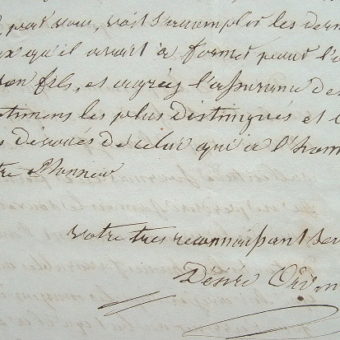 pour vous, voir s'accomplir les dern
x qu'il avait a formés pour l'a
son fils, et agréez l'assurance des
timens les plus distingués et l
s dévoués de celui qui a l'hon
tre Honneur
votre tres reconnaissant Ser
Désiré